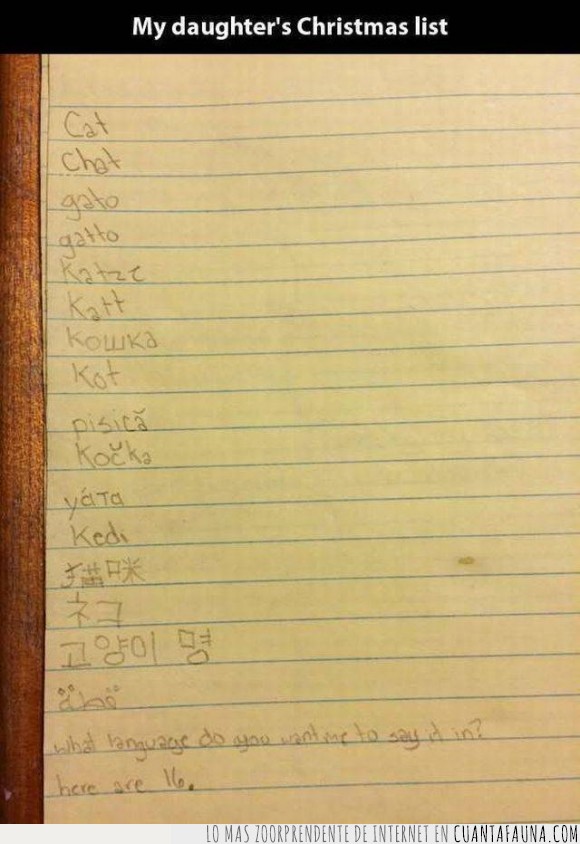 My daughter's Christmas list
Cat
Chat
gato
gatto
Katze
Katt
кошка
Kot
pisică
Kočka
γάτα
Kedi
猫咪
ネコ
고양이 명
what language do you want me to say it in?
here are 16.
LO MAS ZOORPRENDENTE DE INTERNET EN CUANTAFAUNA.COM